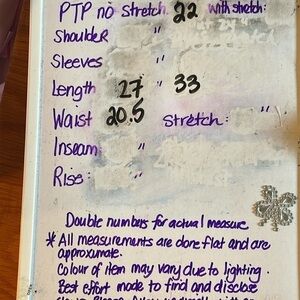 PTP no Stretch 22 with stretch:
Shoulder "
Sleeves "
Length 27 " 33
Waist 20.5 Stretch: "
Inseam: "
Rise: "
Double numbers for actual measure
* All measurements are done flat and are
approximate.
Colour of item may vary due to lighting.
Best effort made to find and disclose